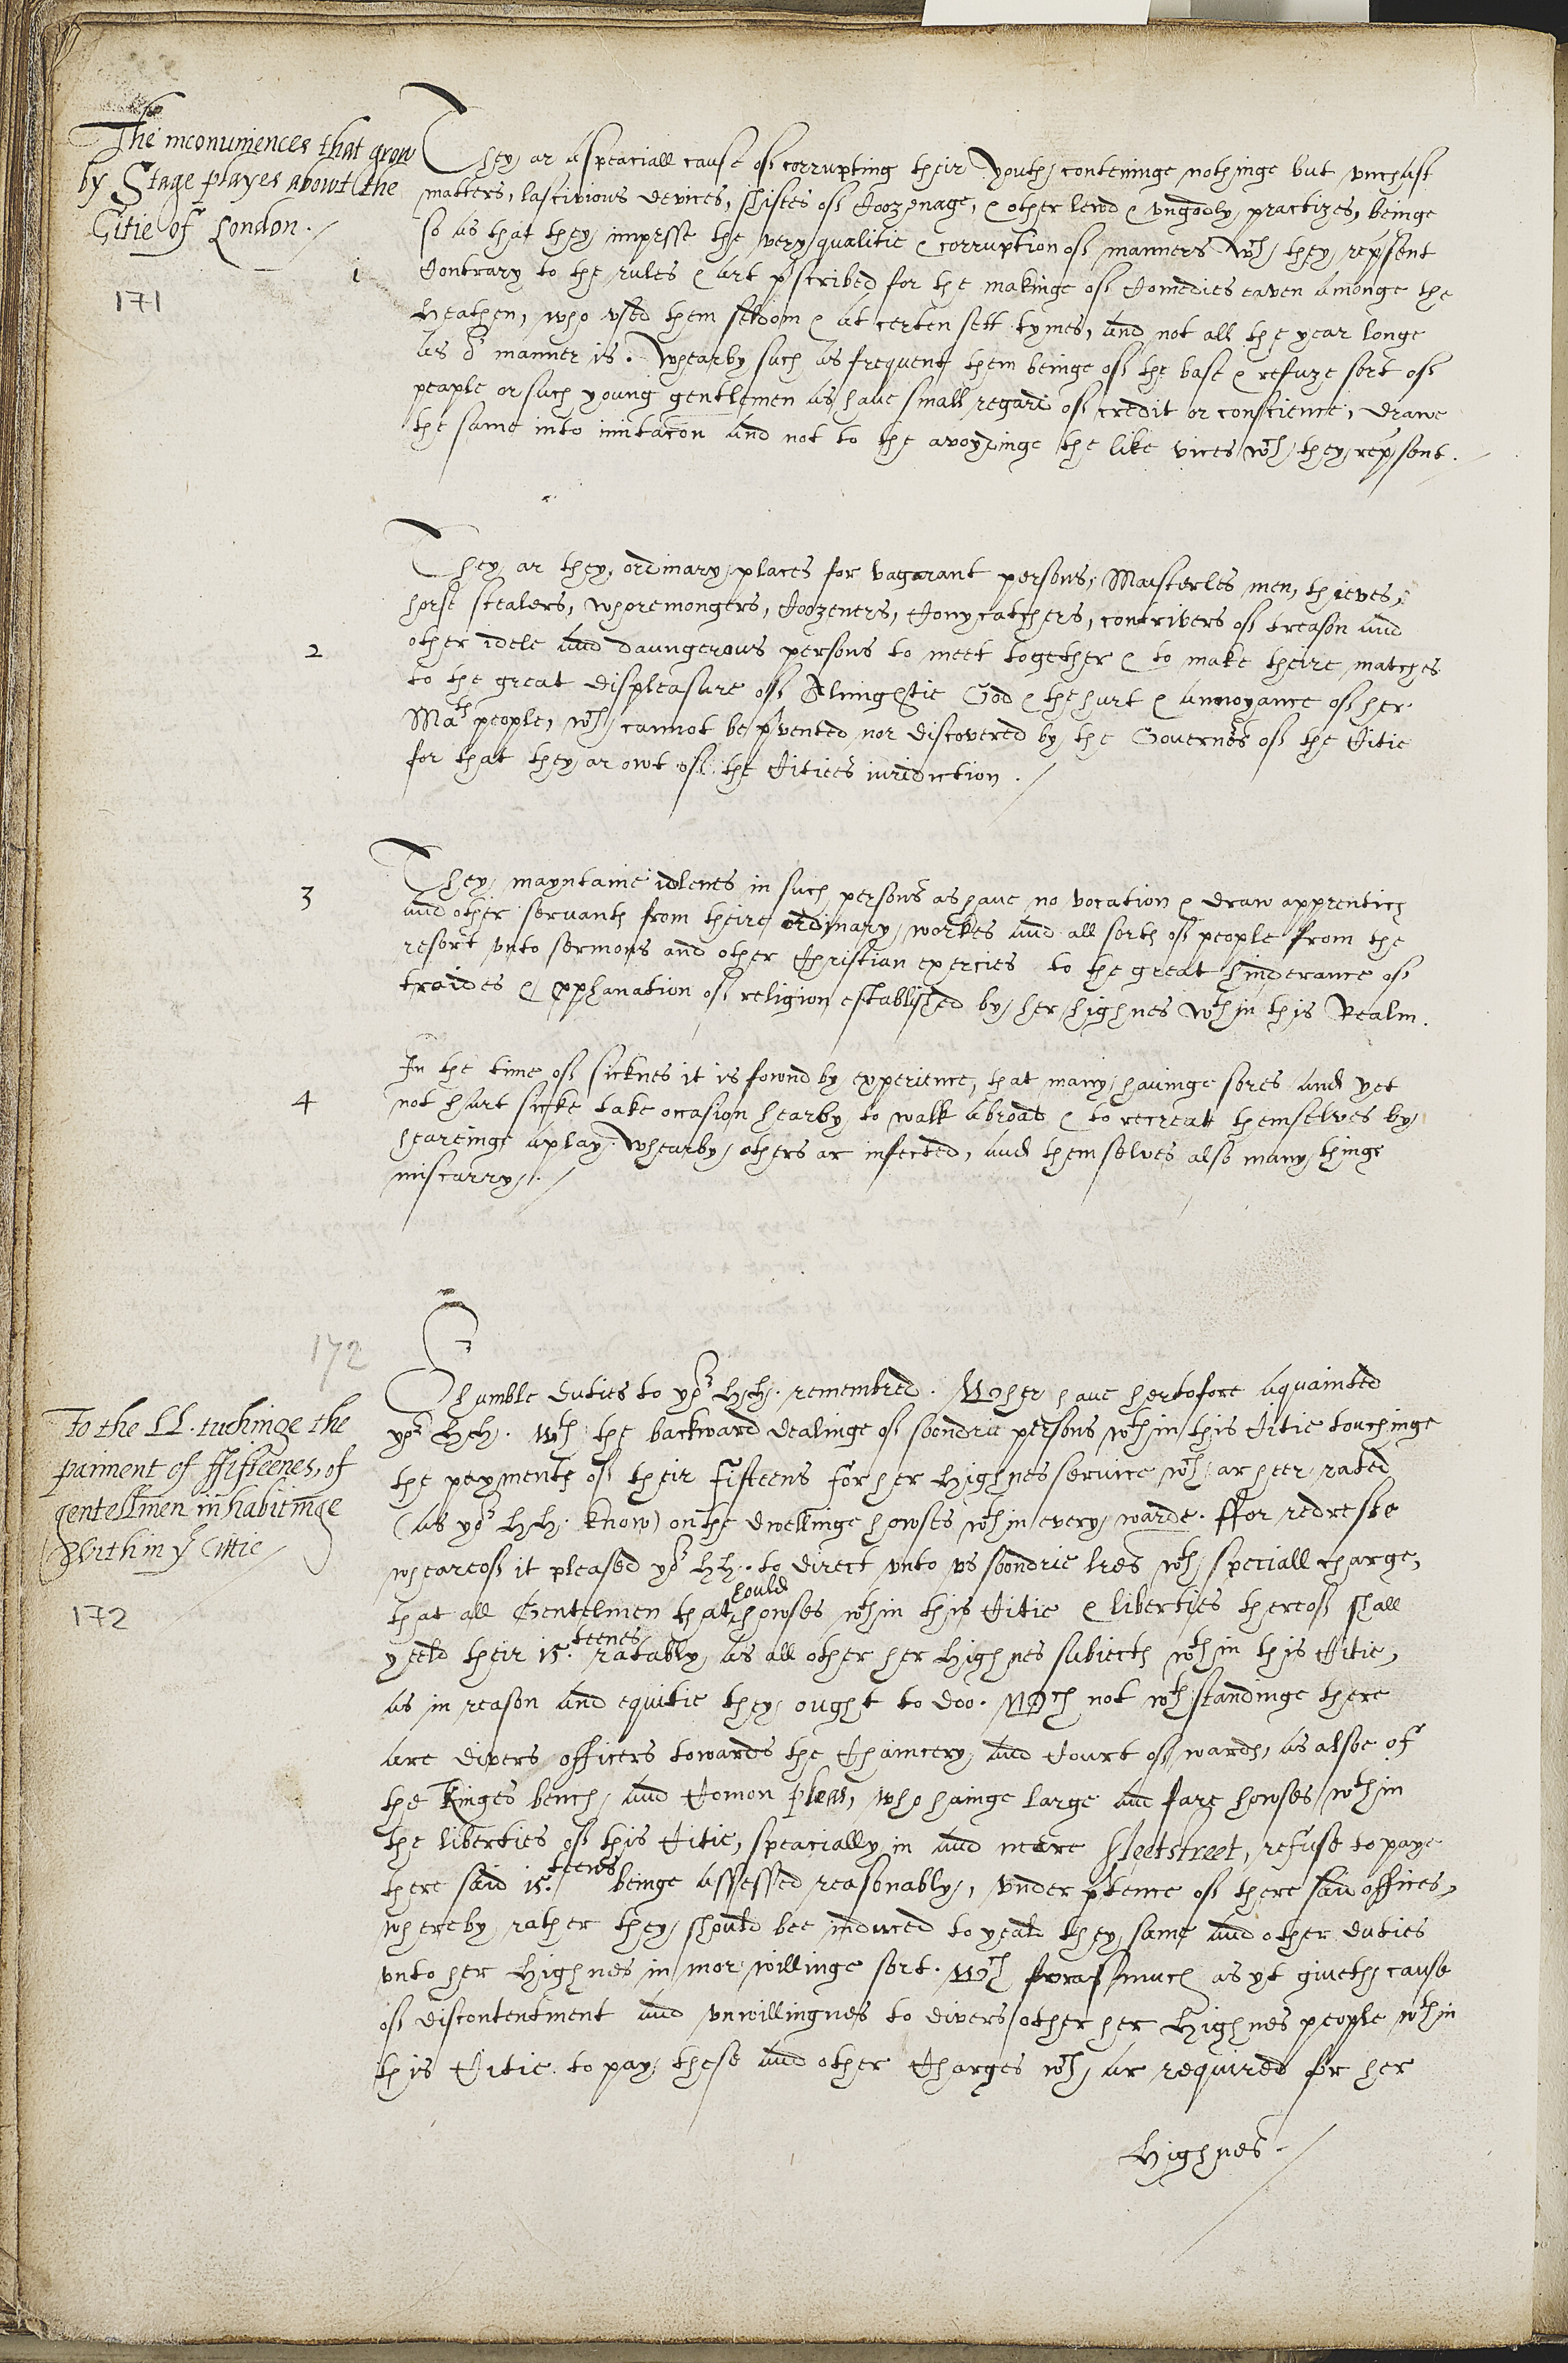 The inconuniences that grow
by Stage playes abowt the
Citie of London.
171
1
They ar a speaciall cause of corrupting their Youth, conteninge nothinge but vnchast
matters, lascivious devices, shiftes of Coozenage, & other lewd & vngodly practizes, beinge
so as that they impresse the very qualitie & corruption of manners wch they rep̱sent
Contrary to the rules & art p̱scribed for the makinge of Comedies eaven amonge the
Heathen, who vsed them seldom & at certen sett tymes, and not all the year longe
as or manner is. Whearby such as frequent them beinge of the base & refuze sort of
people or such young gentlemen as haue small regard of credit or conscience, drawe
the same into imitacõn and not to the avoydinge the like vices wch they rep̱sent.
2
They ar they ordinary places for vagarant persons, Maisterles men, thieves,
horse stealers, whoremongers, Coozeners, Conycatchers, contrivers of treason and
other idele and daungerous persons to meet together & to make theire matches
to the great displeasure of Almightie God & the hurt & annoyance of her
Mats people, wch cannot be p̱vented nor discovered by the Governors of the Citie
for that they ar owt of the Citiees iurisdiction.
3
They mayntaine idlenes in such persons as haue no vocation & draw apprentices
and other servantes from theire ordinary workes and all sortes of people from the
resort vnto sermons and other Christian exercies to the great hinderance of
traides & p̱phanation of religion established by her highnes wthin this Realm.
4
In the time of sicknes it is fownd by experience, that many hauinge sores and yet
not hart sicke take occasion hearby to walk abroad & to recreat themselves by
heareinge a play. Whearby others ar infected, and them selves also many thinges
miscarry.
172
To the LL. tuchinge the
paiment of ffifteenes, of
gentellmen inhabitinge
Within ye Cittie
172
Or humble duties to yor HH. remembred. Wher we haue hertofore aquainted
yor HH. wth the backward dealinge of soondrie persons wthin this Citie touchinge
the paymentes of their fifteens for her Highnes service wch ar heer rated
(as yor HH. know) on the dwellinge howses wthin every warde. ffor redresse
wheareof it pleased yor HH. to direct vnto vs soondrie lres wth speciall charge,
that all Gentelmen that hould howses wthin this Citie & liberties thereof shall
yeeld their 15.teenes ratably as all other her Highnes subiectes wthin this Citie,
as in reason and equitie they ought to doo. Wch not wthstandinge there
are divers officers towards the Chauncery, and Court of wardes, as alsoe of
the Kinges bench, and Comon pleas, who hainge large and fare howses wthin
the liberties of this Citie, speacially in and neare Fleetstreet, refuse to paye
there said 15.teens beinge assessed reasonably, vnder p̱tence of there said offices,
whereby rather they should bee induced to yeald they same and other duties
vnto her Highnes in mor willinge sort. Wch forasmuch as yt giueth cause
of discontentment and vnwillingnes to divers other her Highnes people wthin
this Citie to pay these and other Charges wch ar required for her
Highnes.